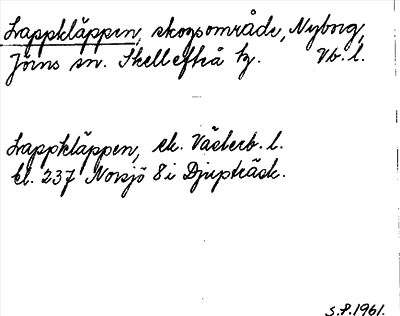 Lappkläppen, skogsområde, Nyborg,
Jörns sn. Skellefteå tg. Vb. l.
Lappkläppen, ek. Västerb. l.
bl. 237 Norsjö 8 i Djupträsk.
S.P. 1961.